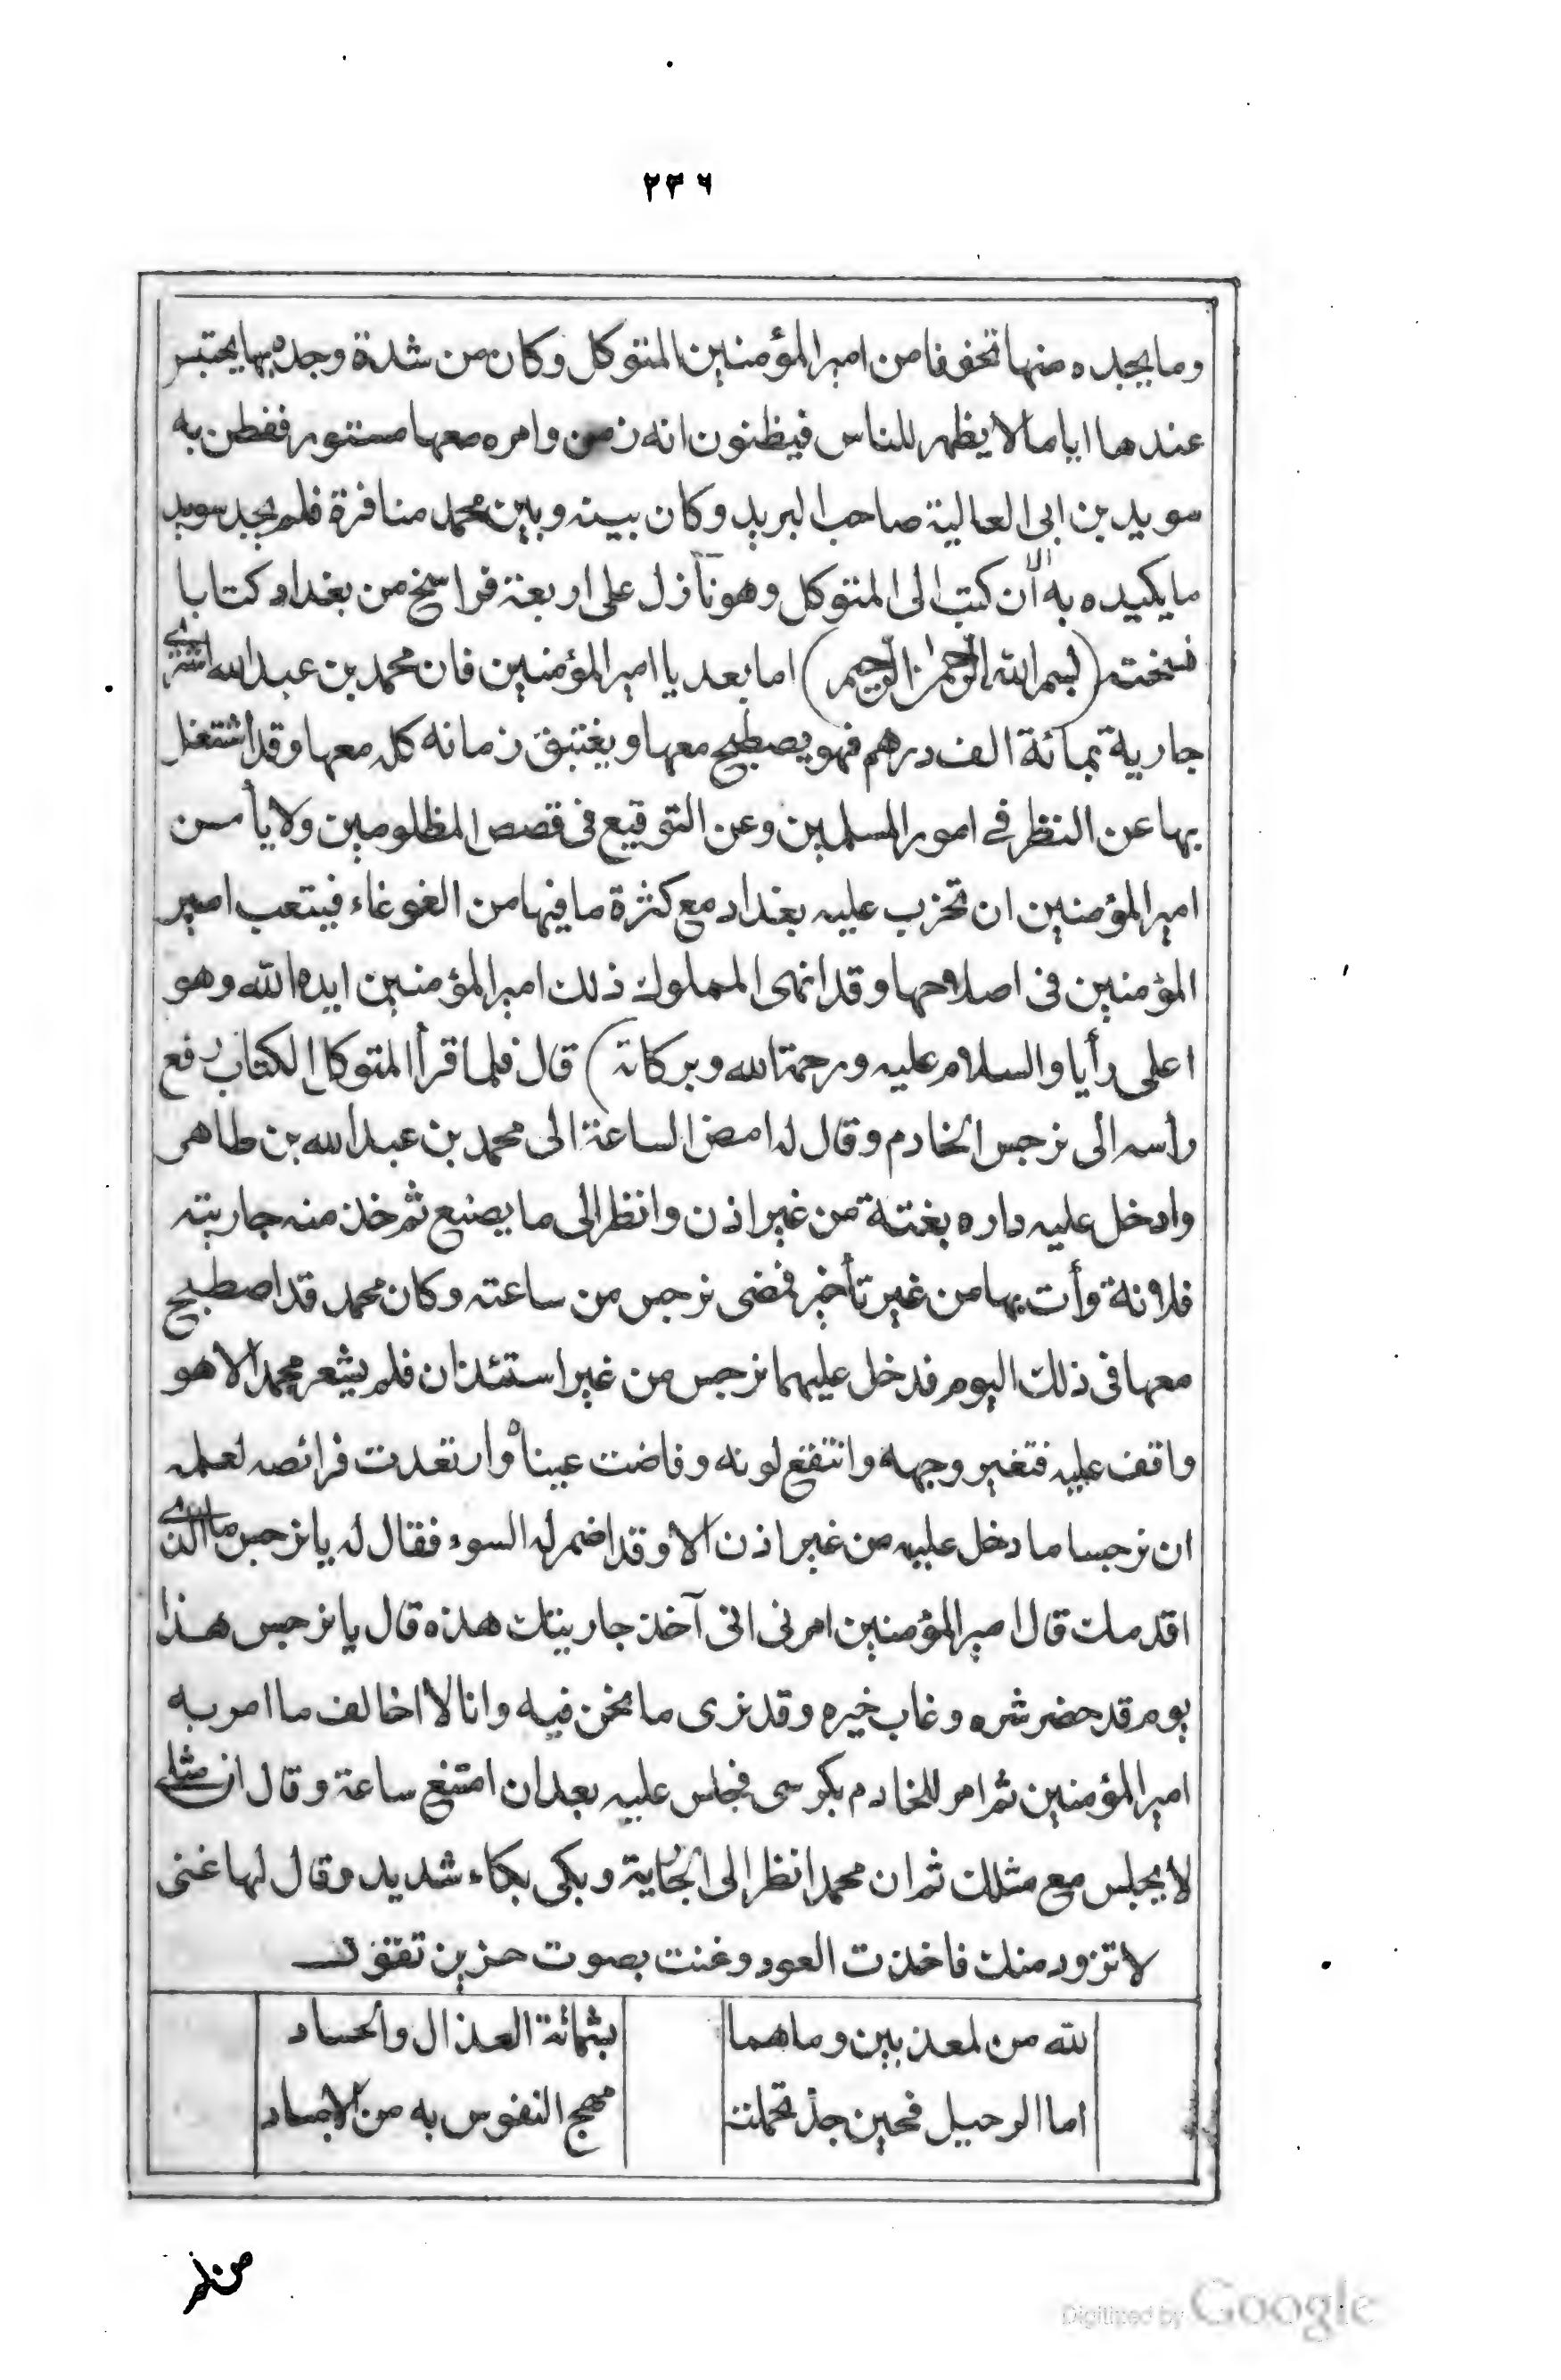 ٢٣٦
وما يجده منها تخوفا من امير المؤمنين المتوكل وكان من شدة وجده بها يحتبس
عندها اياما لا يظهر للناس فيظنون انه زمن وامره معها مستور ففطن به
سويد بن ابى العالية صاحب البريد وكان بينه وبين محمد منافرة فلم يجد سويد
ما يكيده به الا أن كتب الى المتوكل وهو نازل على اربعة فراسخ من بغداد كتابا
نسخته (بسم الله الرحمن الرحيم) اما بعد يا امير المؤمنين فان محمد بن عبد الله اشترى
جارية بمائة الف درهم فهو يصطبح معها ويغتبق زمانه كله معها وقد اشتغل
بها عن النظر في امور المسلمين وعن التوقيع فى قصص المظلومين ولا يأمن
امير المؤمنين ان تخرب عليه بغداد مع كثرة ما فيها من الغوغاء فيتعب امير
المؤمنين فى اصلاحها وقد انهى المملوك ذلك امير المؤمنين ايده الله وهو
اعلى رأيا والسلام عليه ورحمة الله وبركاته) قال فلما قرأ المتوكل الكتاب رفع
رأسه الى نرجس الخادم وقال له امض الساعة الى محمد بن عبد الله بن طاهر
وادخل عليه داره بغتة من غير اذن وانظر الى ما يصنع ثم خذ منه جاريته
فلانة وأت بها من غير تأخير فمضى نرجس من ساعته وكان محمد قد اصطبح
معها فى ذلك اليوم فدخل عليهما نرجس من غير استئذان فلم يشعر محمد الا هو
واقف عليه فتغير وجهه وانتقع لونه وفاضت عيناه وارتعدت فرائصه لعلمه
ان نرجسا ما دخل عليه من غير اذن الا وقد اضمر له السوء فقال له يا نرجس ما الذى
اقدمك قال امير المؤمنين امرنى انى آخذ جاريتك هذه قال يا نرجس هذا
يوم قد حضر شره وغاب خيره وقد نرى ما نحن فيه وانا لا اخالف ما امر به
امير المؤمنين ثم امر للخادم بكرسى فجلس عليه بعد ان امتنع ساعة وقال ان مثلى
لا يجلس مع مثلك ثم ان محمدا نظر الى الجارية وبكى بكاء شديد وقال لها غنى
لا تزود منك فاخذت العود وغنت بصوت حزين تقول
لله من لمعذبين وما هما بشماتة العذال والحساد
اما الرحيل فحين جد تحملت مهج النفوس به من الاجساد
من لم
Digitized by Google